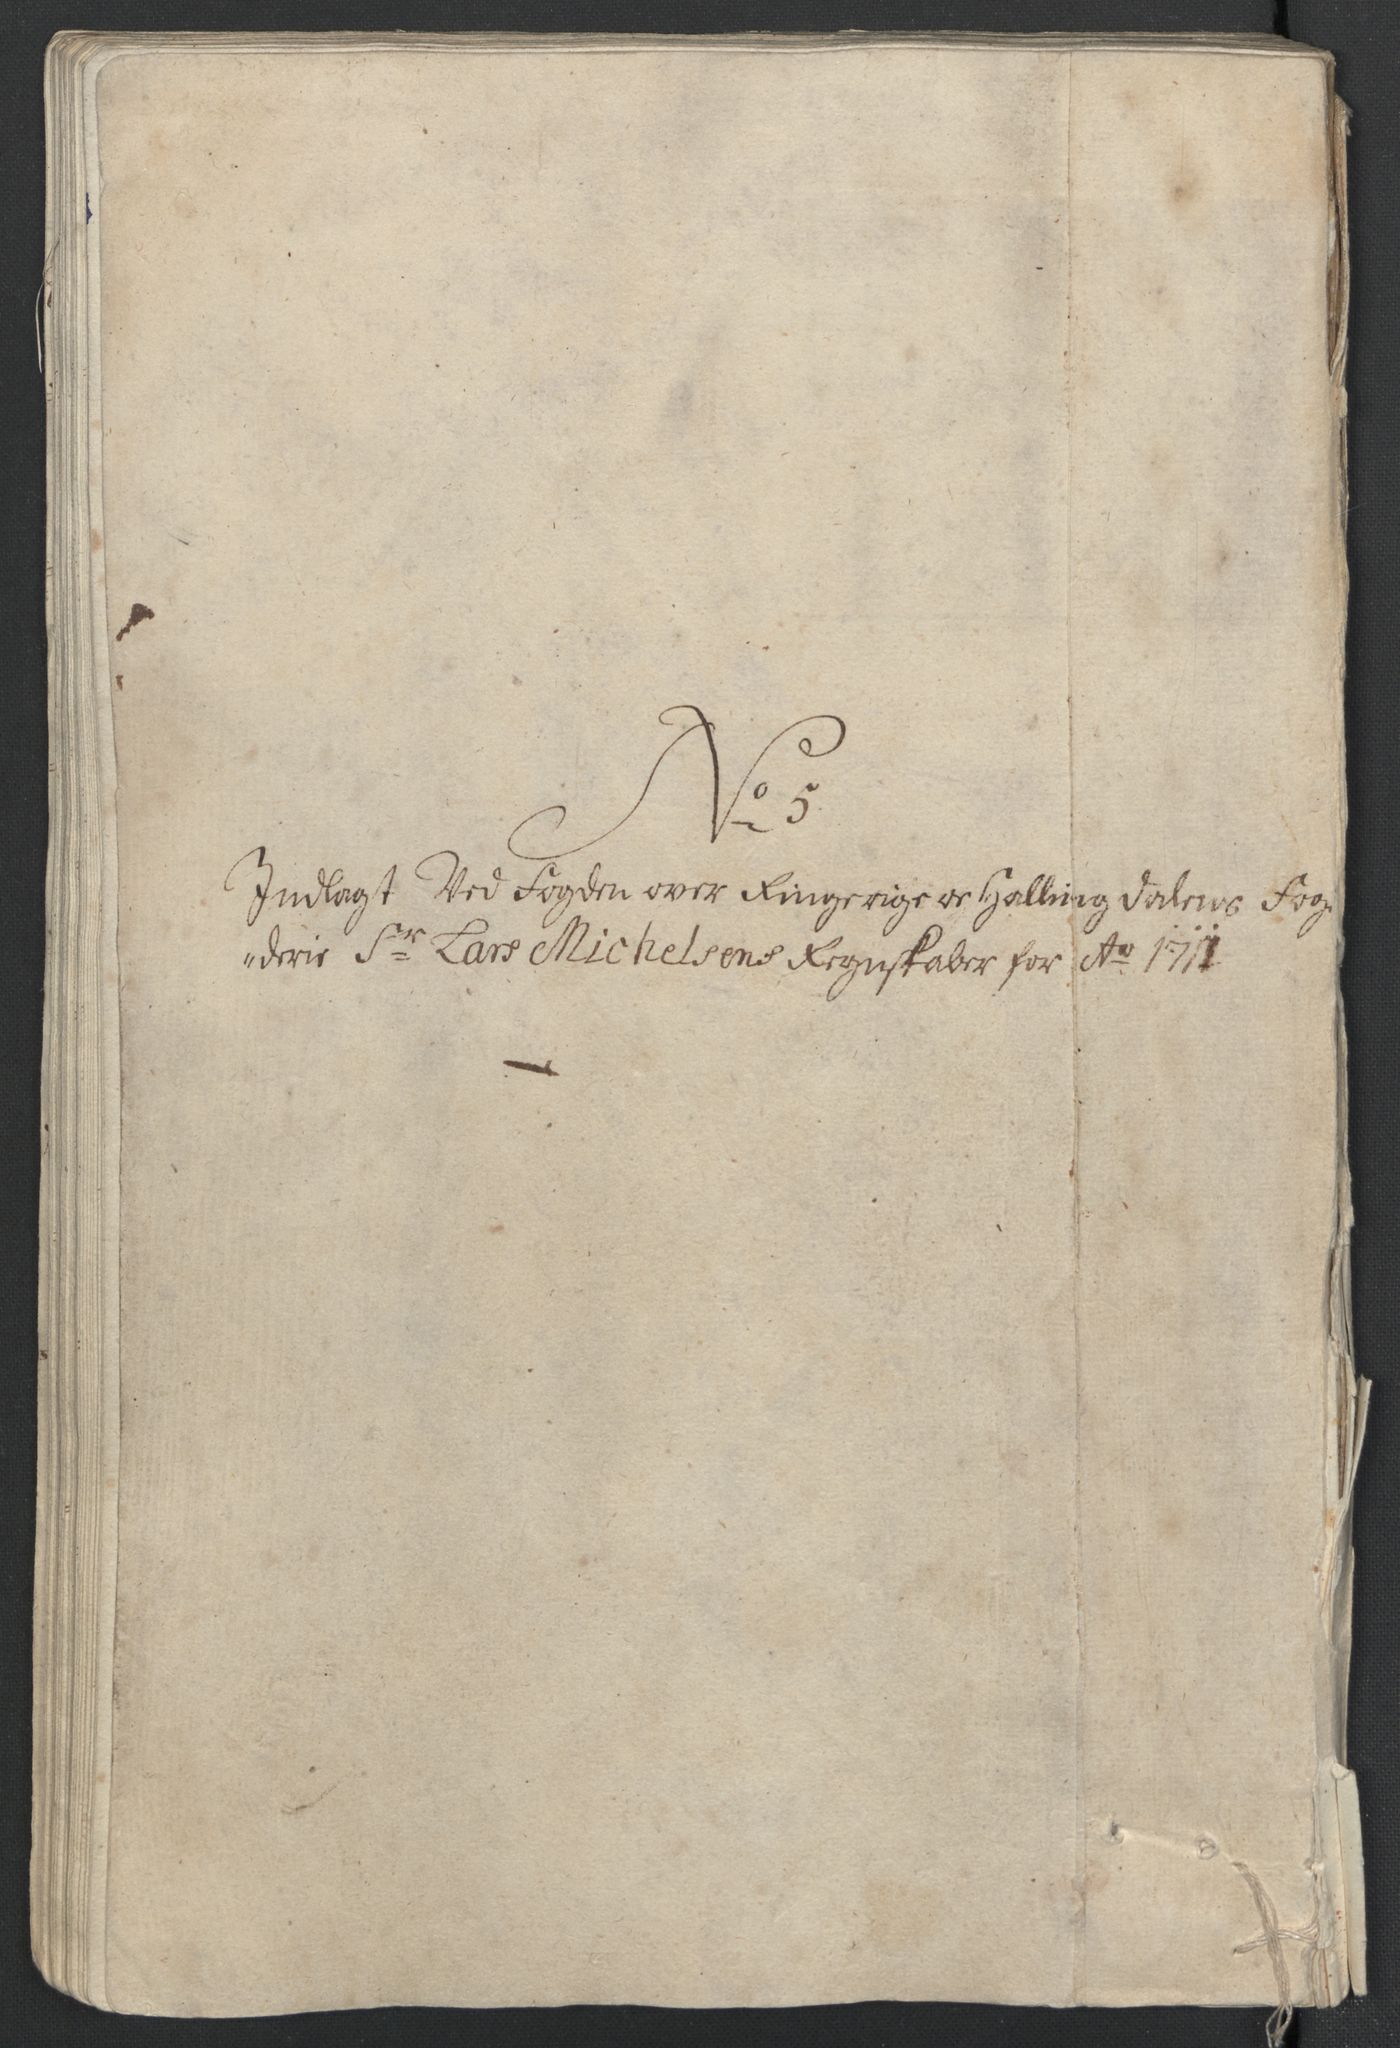 No 5
Indlagt Ved Fogden over Ringerige oc Hallingdalens Fog
"derie Sr Lars Michelsens Regnskaber for Ao 1711